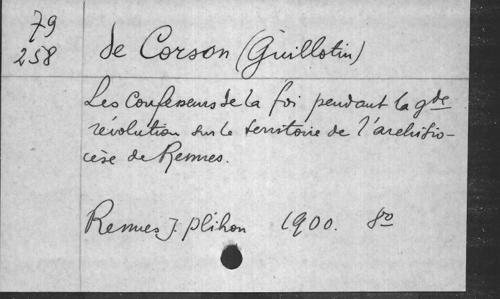 79
258
de Corson (Guillotin)
Les Confesseurs de la foi pendant la gde
révolution sur le territoire de l'archidio-
cèse de Rennes.
Rennes J. Plihon 1900. 8o